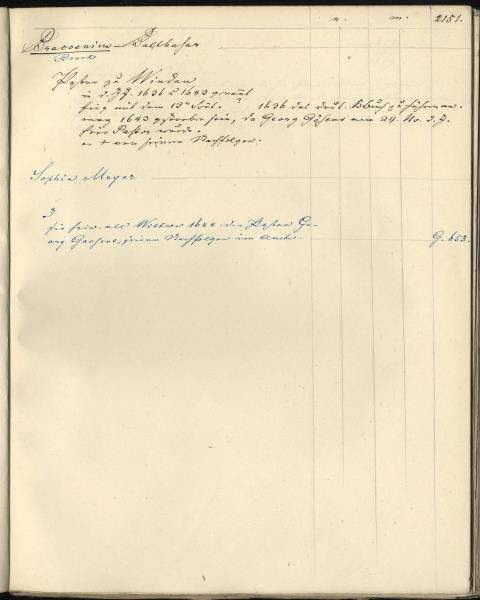 n. m. 2151.
Bravoenius Balthasar
Pastor zu Windau
in d. JJ. 1636 u 1643 genannt
fing mit dem 13. Sont. 1636 das deut. KBuch zu führen an.
mag 1643 gestorben sein, da Georg am 24. No. d. J.
hier Pastor wurde.
er + von seinem Nachfolger.
Sophia Meyer
3
sie heir. als Wittwe 1644 den Pastor Ge-
org seinen Nachfolger im Amte.
G. 653.